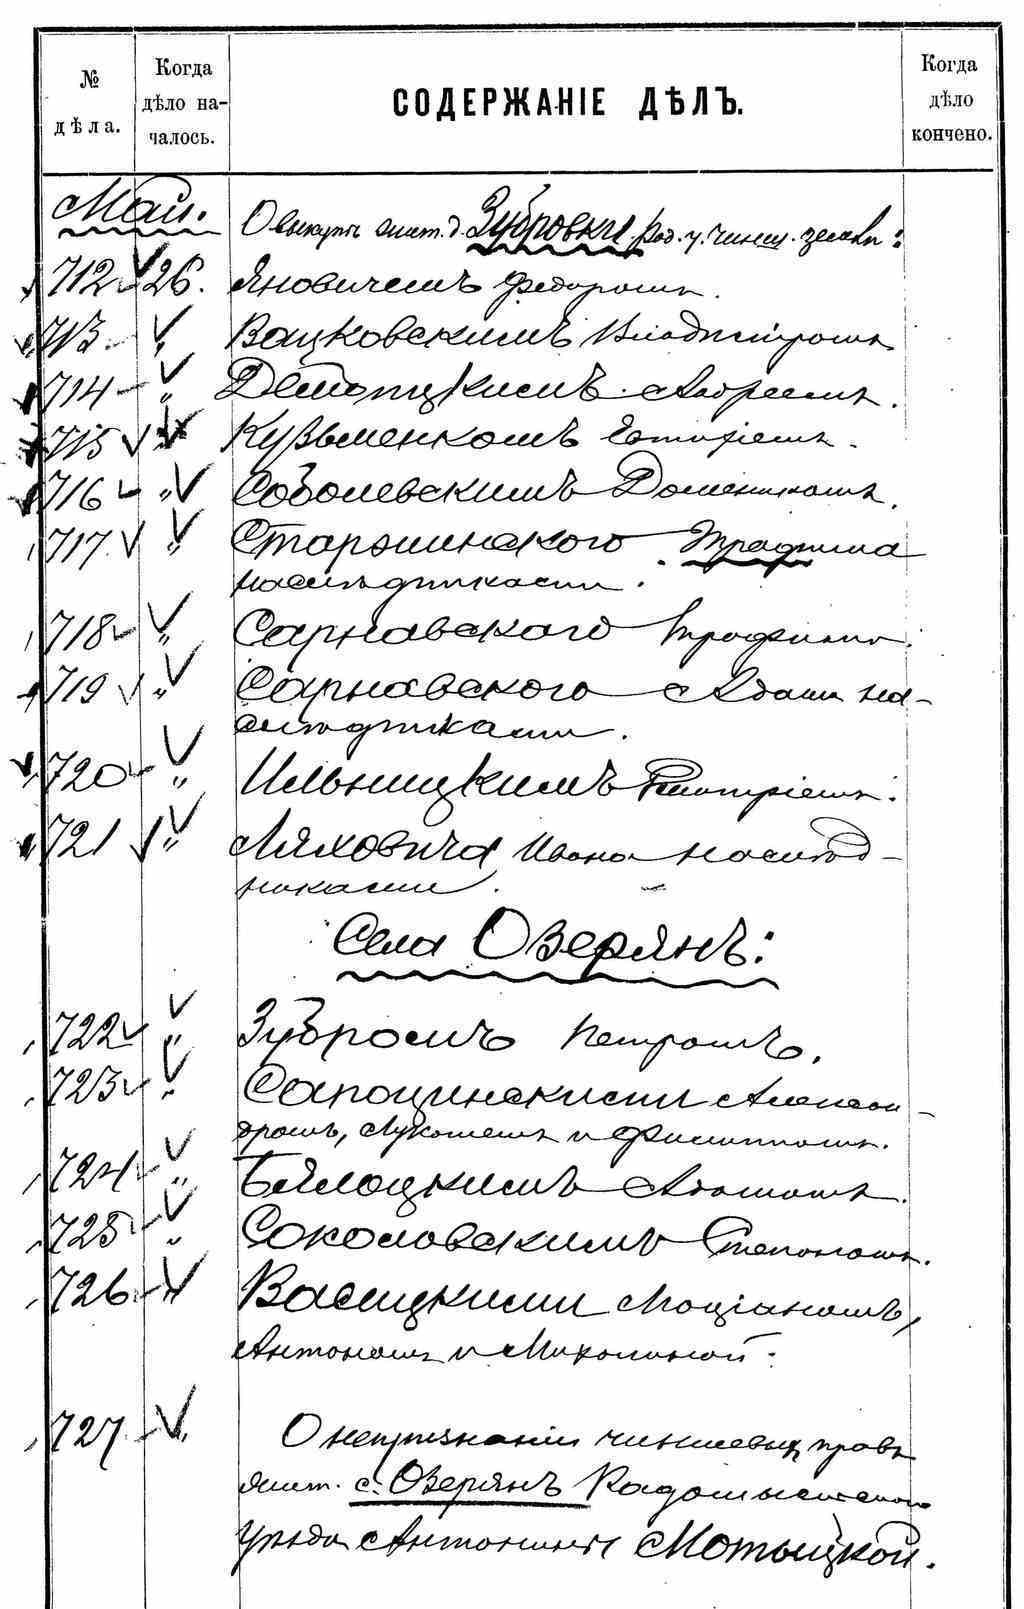 № дѣла.
Когда дѣло на-чалось.
СОДЕРЖАНІЕ ДѢЛЪ.
Когда дѣло кончено.
Май.
О выкупѣ жит. д. Зубровки Рад. у. чинш. земли:
712 26. Яновичемъ Федоромъ.
713 " Вацковскимъ Владиміромъ
714 " Андреемъ.
715 " Кузьменкомъ
716 " Соболевскимъ Домеником.
717 " Старжинского
наслѣдниками.
718 " Сарнавского Трофима.
719 " Сарнавского Адама на-
слѣдниками.
720 " Ильницкимъ Дмитріемъ.
721 " Ляховича Ивана наслѣд-
никами.
Села Озерянъ:
722 " Зубромъ Петромъ.
723 " Сапоцинскими Алексан-
дромъ, и Филиппомъ.
724 " Бялоцкимъ Адамомъ.
725 " Соколовскимъ Степаномъ.
726 " Васицкими Моціаномъ,
Антономъ и Михалиной.
727 " О непризнаніи чиншевыхъ правъ
жит. с. Озерянъ Радомысльского
уѣзда Антонины Мотыцкой.